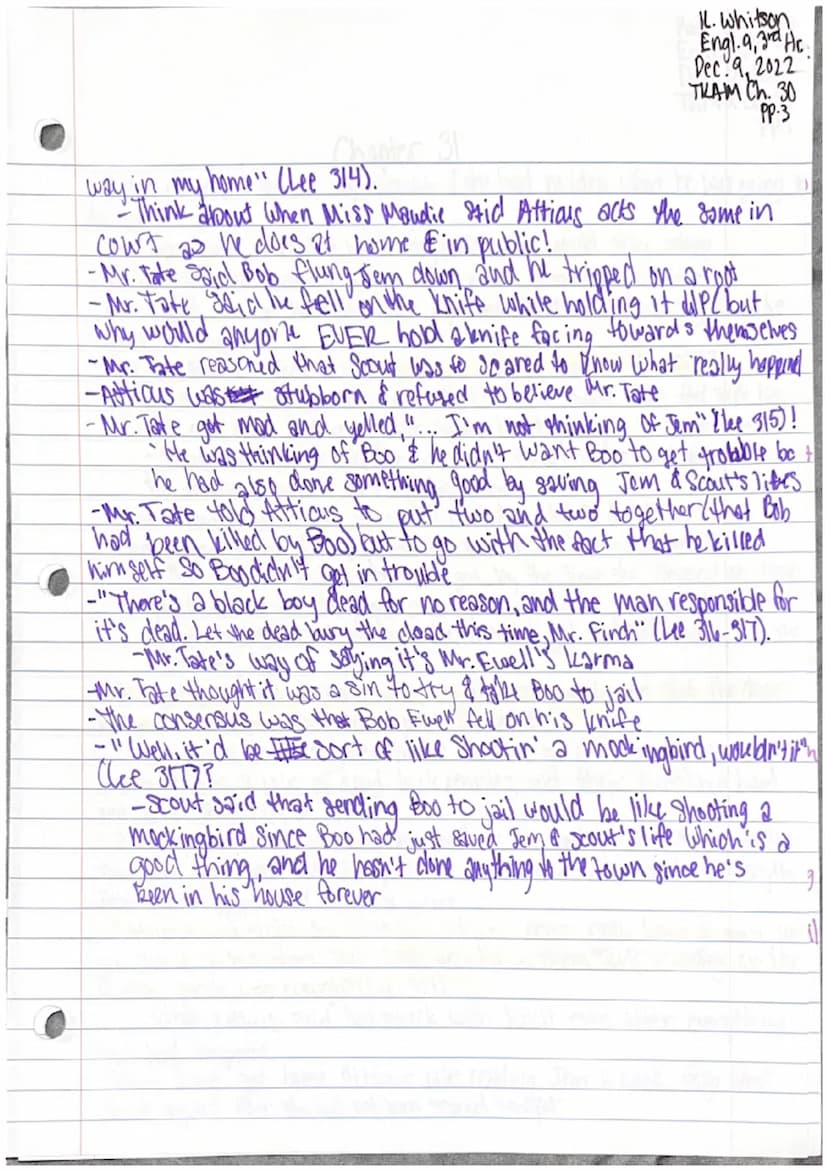 K. Whitson
Engl. 9, 3rd Hr.
Dec. 9, 2022
TKAM Ch. 30
pp. 3
Chapter 31
way in my home" (Lee 314).
- Think about when Miss Maudie said Atticus acts the same in
court as he does at home & in public!
- Mr. Tate said Bob flung Jem down and he tripped on a root
- Mr. Tate said he fell on the knife while holding it up (but
why would anyone EVER hold a knife facing towards themselves
- Mr. Tate reasoned that Scout was to scared to know what really happend
- Atticus was stubborn & refused to believe Mr. Tate
- Mr. Tate got mad and yelled, "... I'm not thinking of Jem" (Lee 315)!
- He was thinking of Boo & he didn't want Boo to get trobble bc
he had also done something good by saving Jem & Scout's lifes
- Mr. Tate told Atticus to put two and two together (that Bob
had been killed by Boo) but to go with the fact that he killed
himself so Boo didn't get in trouble
- "There's a black boy dead for no reason, and the man responsible for
it's dead. Let the dead bury the dead this time, Mr. Finch" (Lee 316-317).
- Mr. Tate's way of saying it's Mr. Ewell's karma
- Mr. Tate thought it was a sin to try & take Boo to jail
- The consensus was that Bob Ewell fell on his knife
- "Well, it'd be sort of like shootin' a mockingbird, wouldn't it"
(Lee 317)?
- Scout said that sending Boo to jail would be like shooting a
mockingbird since Boo had just saved Jem & Scout's life which is a
good thing, and he hasn't done anything to the town since he's
been in his house forever